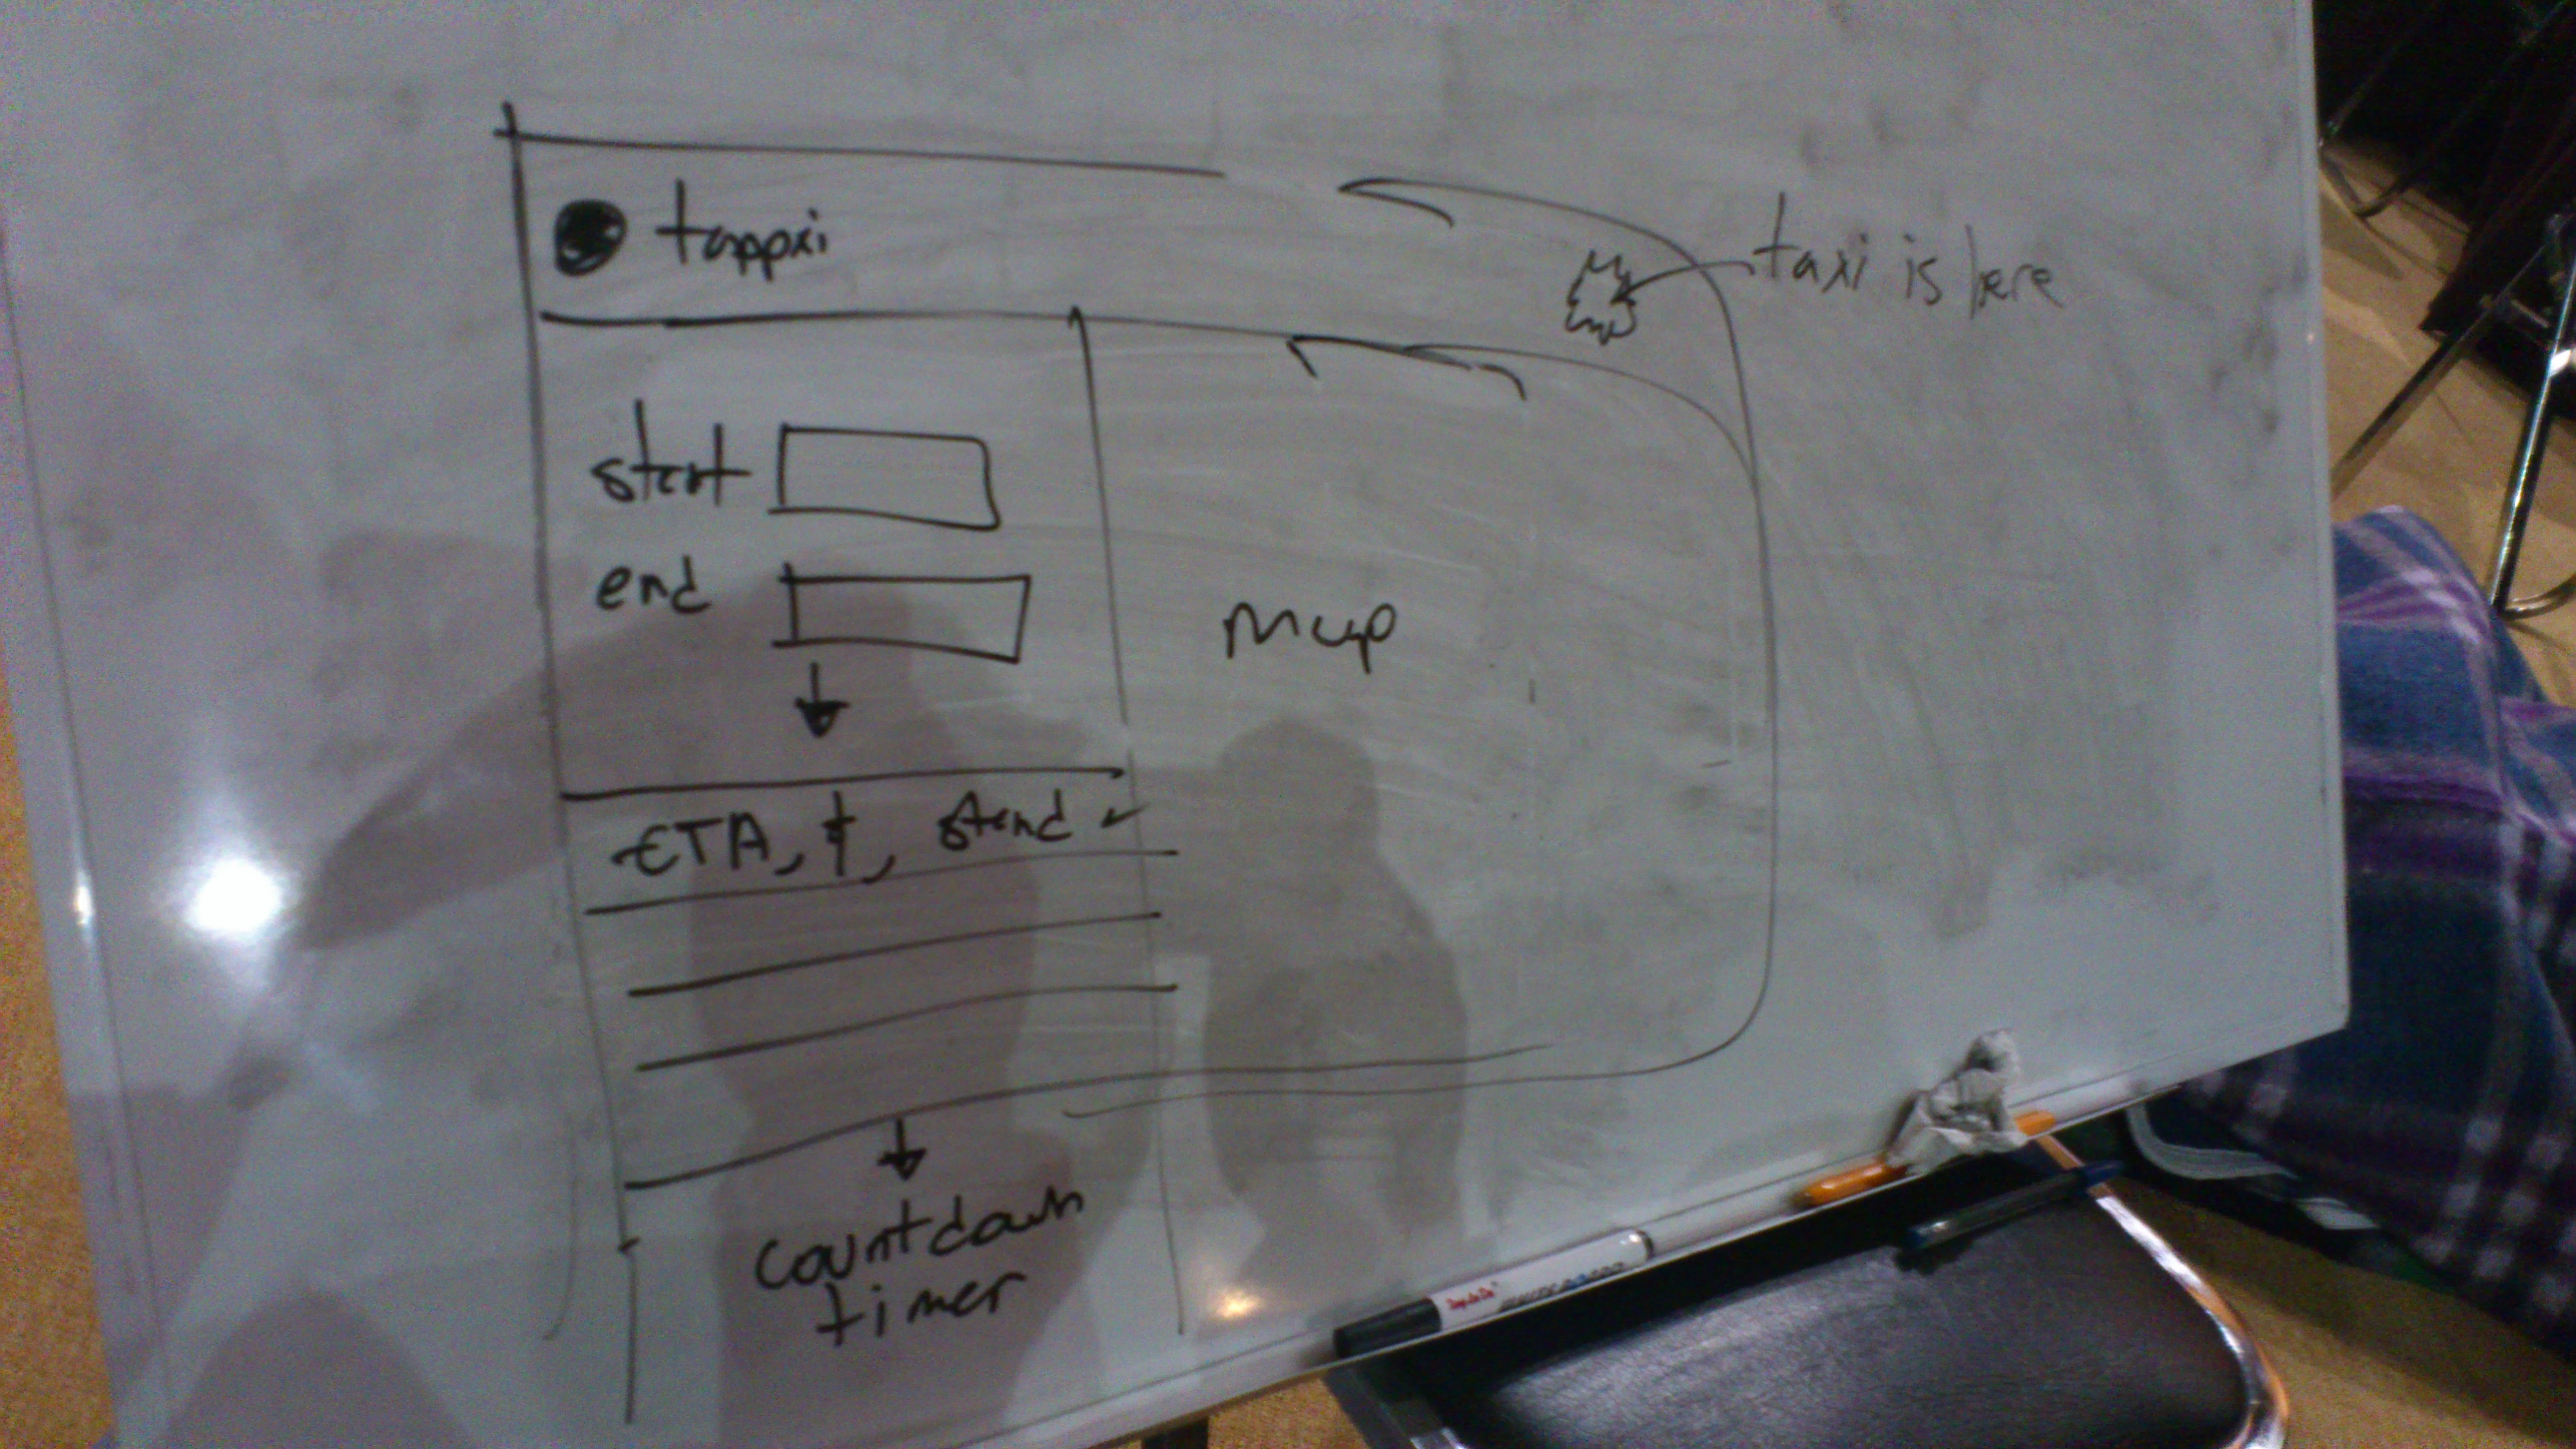 tappxi
taxi is here
start
end
map
ETA, $, stand
countdown
timer